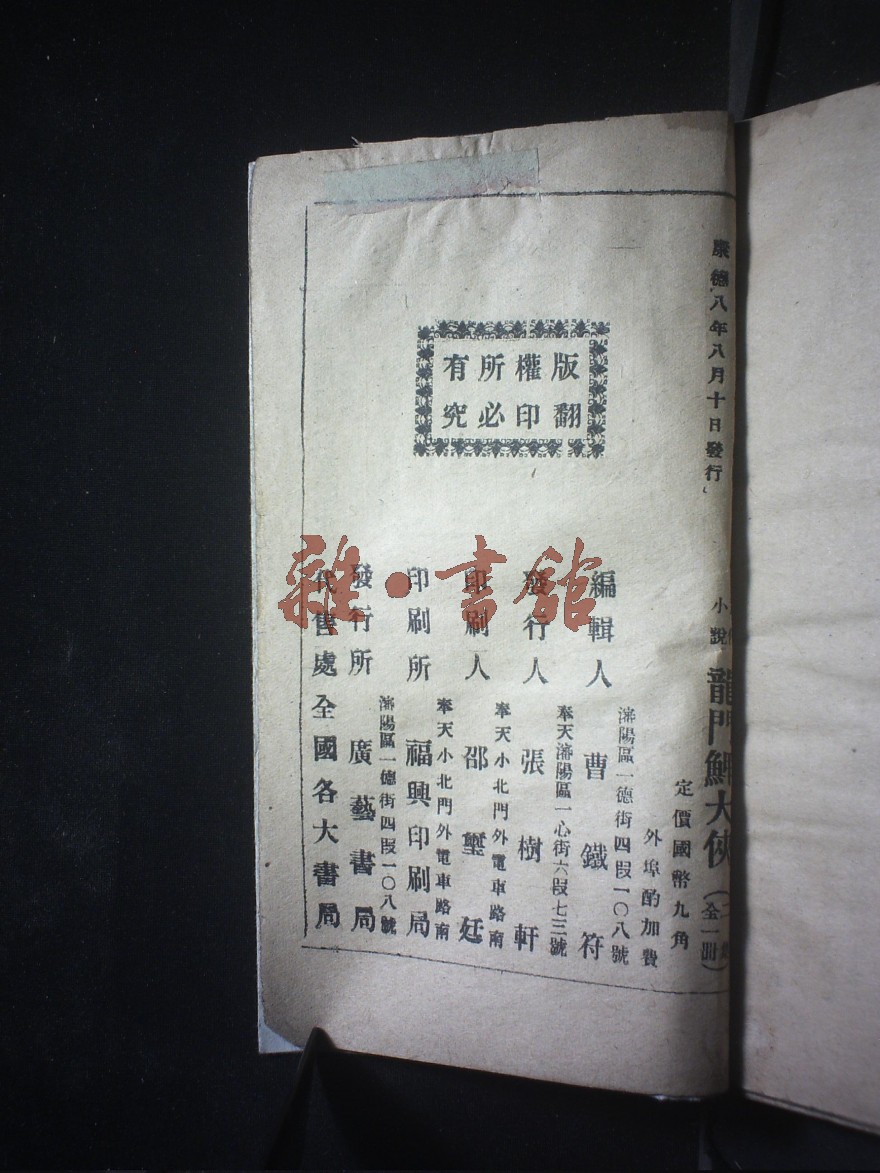 康德八年八月十日發行
小說
龍門鯉大俠
全一冊
定價國幣九角
外埠酌加費
版權所有
翻印必究
瀋陽區一德街四段一〇八號
編輯人 曹鐵符
奉天瀋陽區一心街六段七三號
發行人 張樹軒
奉天小北門外電車路南
印刷人 邵璽廷
奉天小北門外電車路南
印刷所 福興印刷局
瀋陽區一德街四段一〇八號
發行所 廣藝書局
代售處 全國各大書局
雜·書館